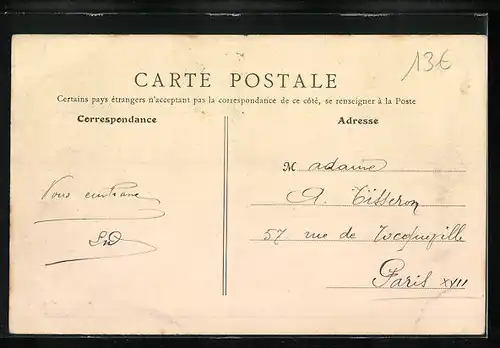 13€
CARTE POSTALE
Certains pays étrangers n'acceptant pas la correspondance de ce côté, se renseigner à la Poste
Correspondance
Adresse
Madame
A. Tisseron
57 rue de Tocqueville
Paris XVII
Vous embrasse